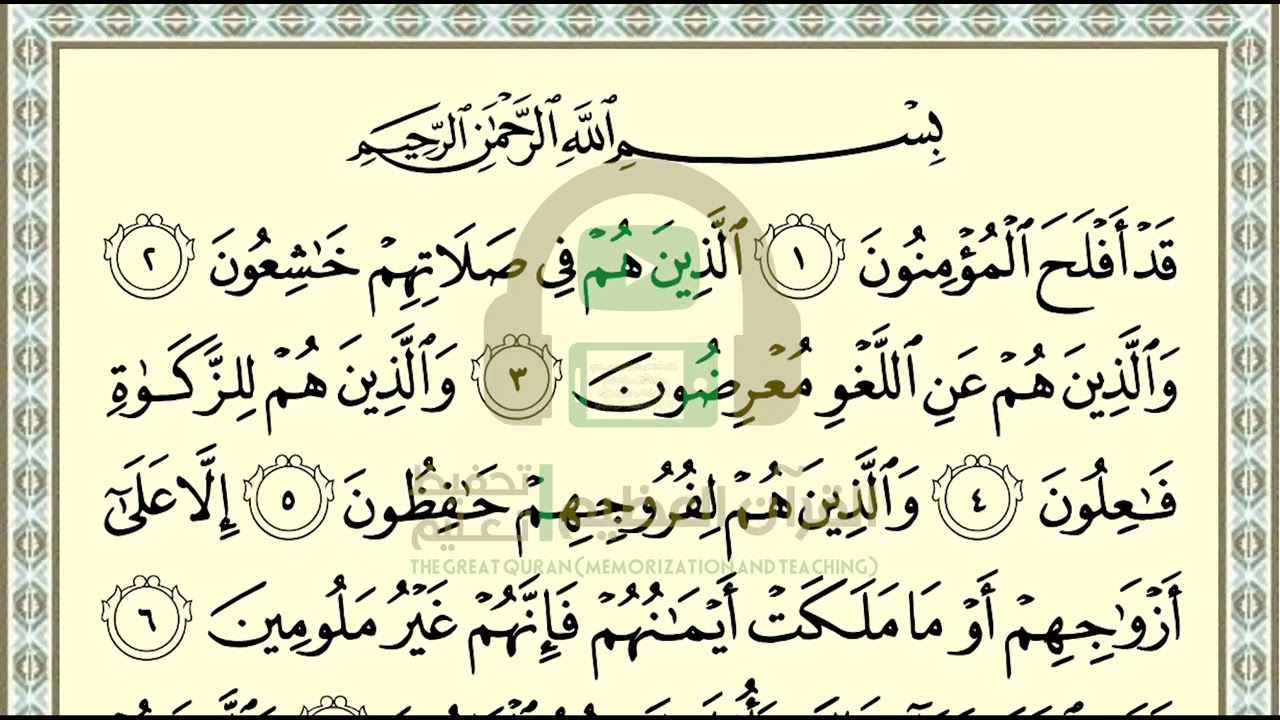 بِسْمِ ٱللَّهِ ٱلرَّحْمَٰنِ ٱلرَّحِيمِ
قَدْ أَفْلَحَ ٱلْمُؤْمِنُونَ ١ ٱلَّذِينَ هُمْ فِى صَلَاتِهِمْ خَٰشِعُونَ ٢
وَٱلَّذِينَ هُمْ عَنِ ٱللَّغْوِ مُعْرِضُونَ ٣ وَٱلَّذِينَ هُمْ لِلزَّكَوٰةِ
فَٰعِلُونَ ٤ وَٱلَّذِينَ هُمْ لِفُرُوجِهِمْ حَٰفِظُونَ ٥ إِلَّا عَلَىٰٓ
القرآن العظيم تحفيظ تعليم
THE GREAT QURAN (MEMORIZATION AND TEACHING)
أَزْوَٰجِهِمْ أَوْ مَا مَلَكَتْ أَيْمَٰنُهُمْ فَإِنَّهُمْ غَيْرُ مَلُومِينَ ٦